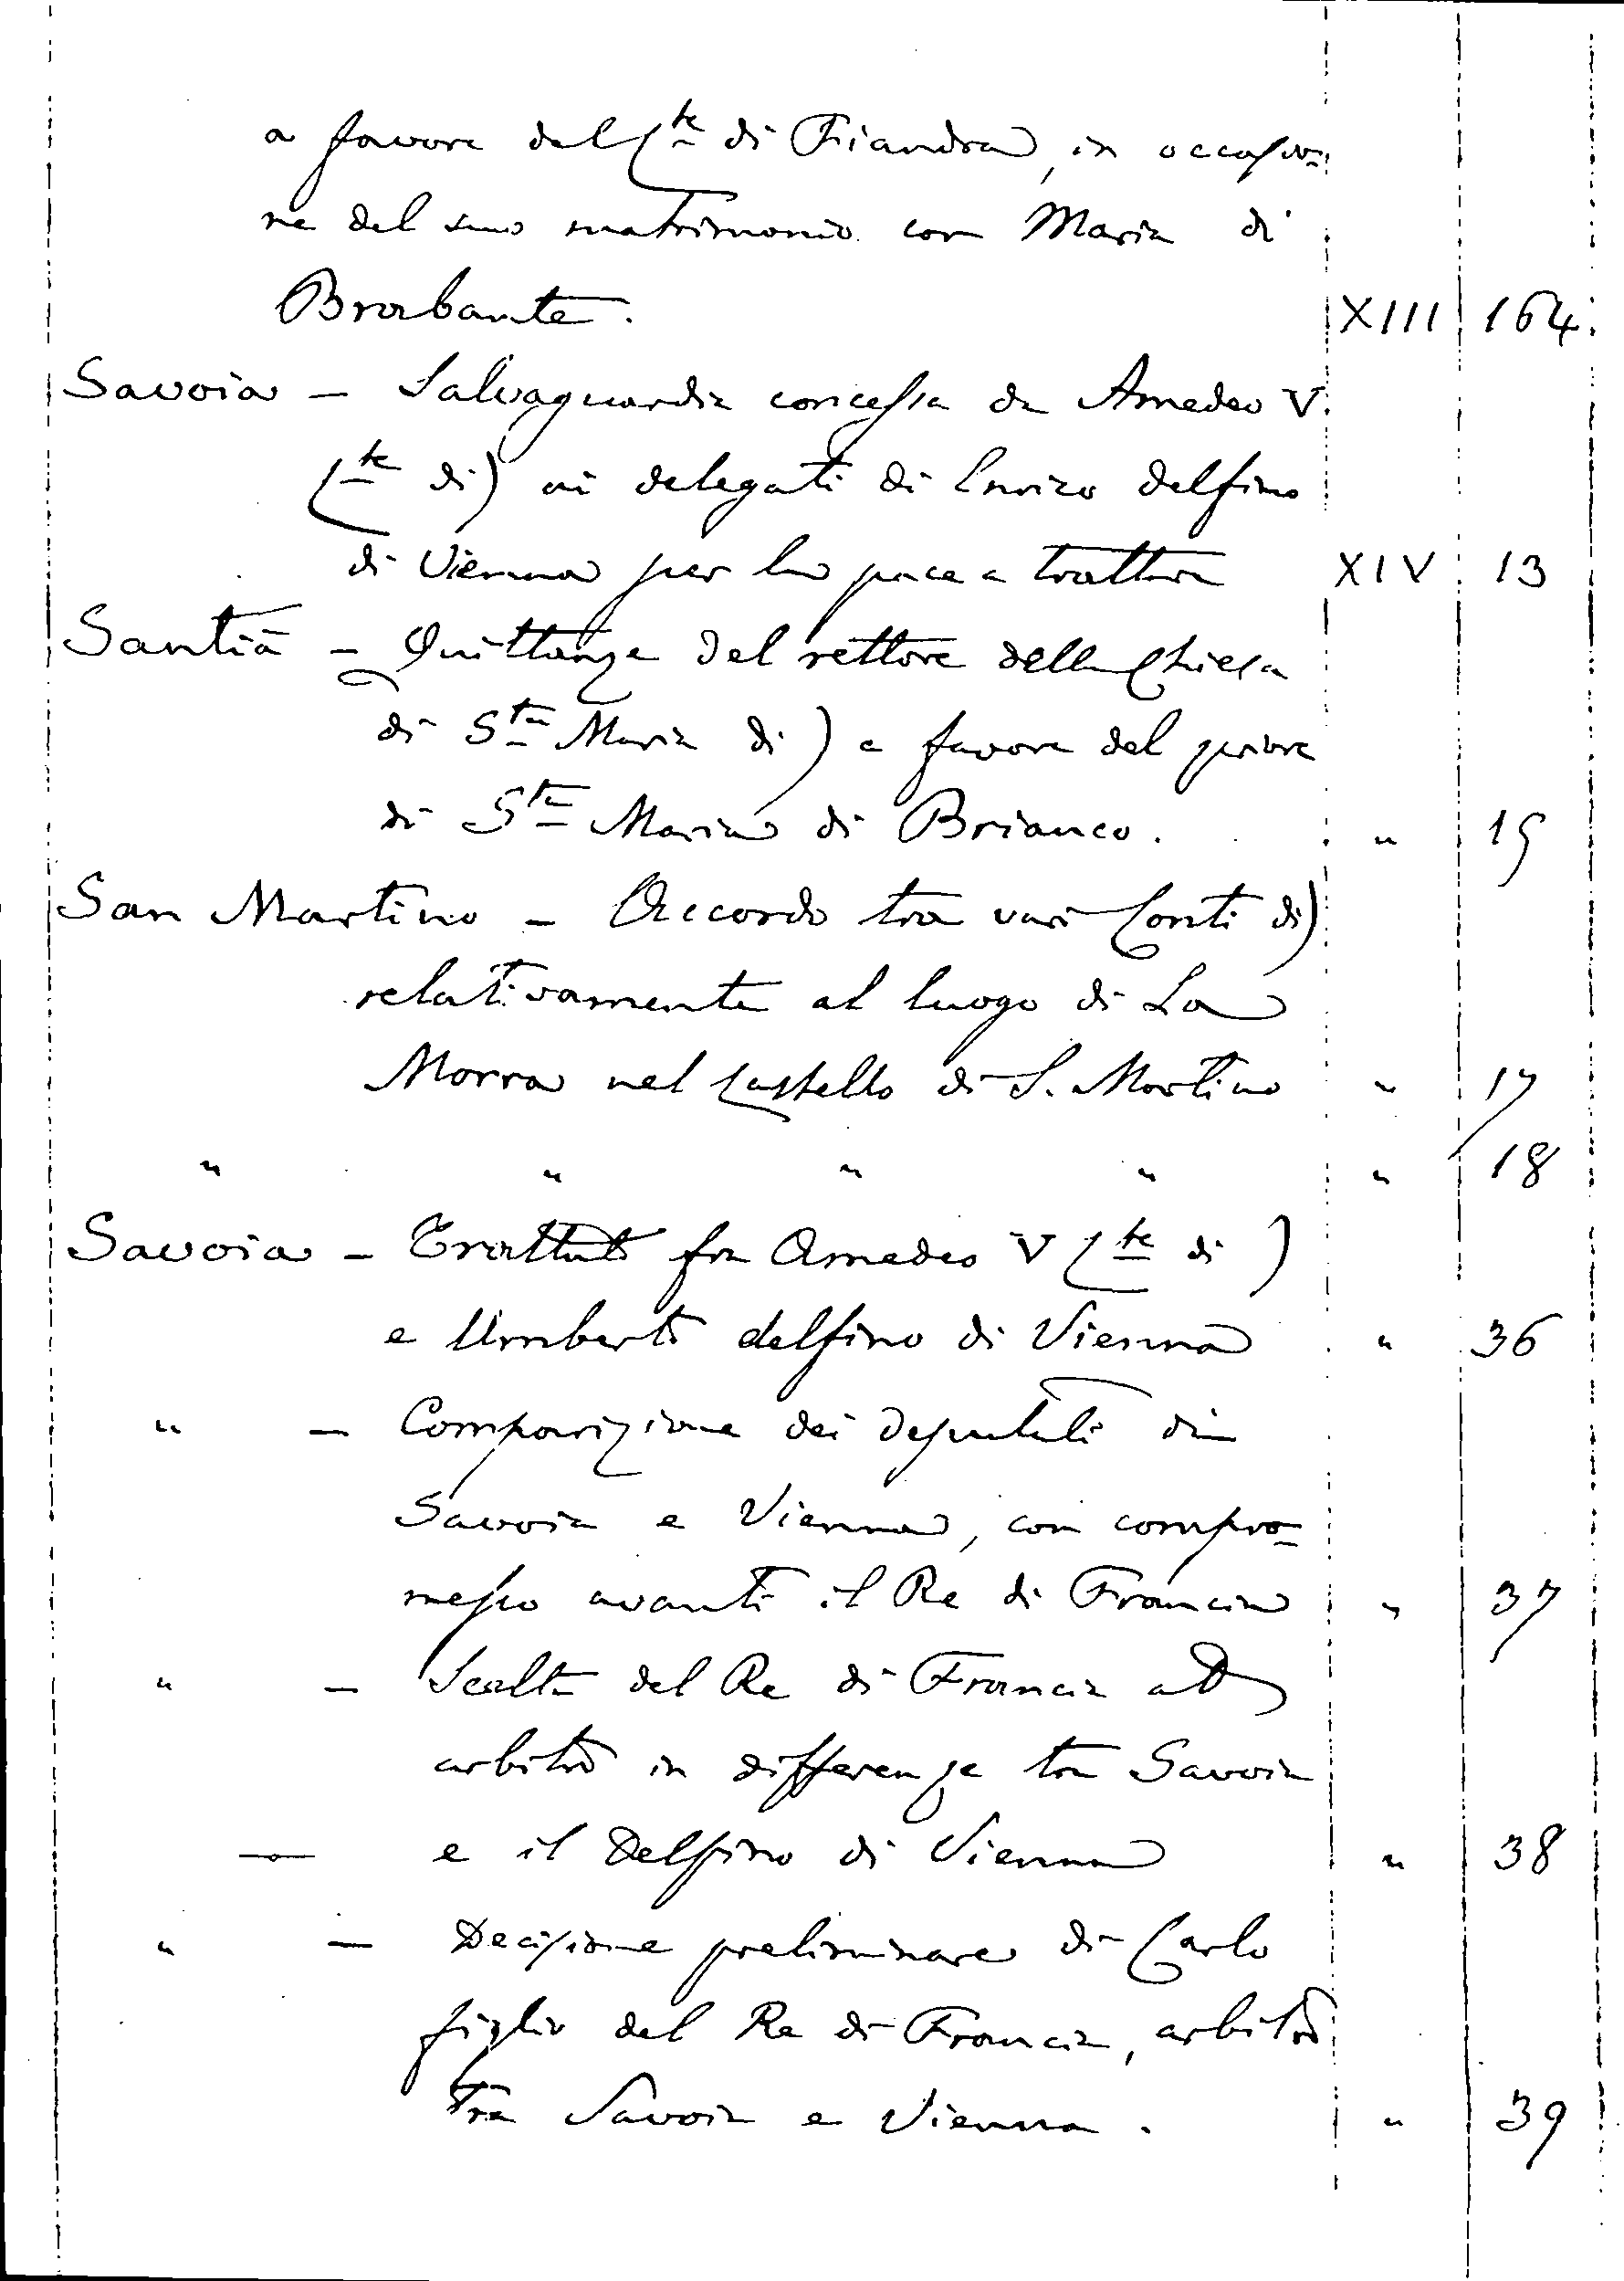 a favore del Cte di Fiandra, in occasio=
ne del suo matrimonio con Maria di
Brabante. XIII 164
Savoia – Salvaguardia concessa da Amedeo V
(Cte di) ai delegati di Enrico delfino
di Vienna per la pace a trattare XIV 13
Santià – Quittanza del rettore della Chiesa
di Sta Maria di) a favore del priore
di Sta Maria di Brianco. " 15
San Martino – Accordo tra vari Conti di)
relativamente al luogo di La
Morra nel Castello di S. Martino " 17
" " " " " 18
Savoia – Trattato fra Amedeo V (Cte di)
e Umberto delfino di Vienna " 36
" – Comparizione dei deputati di
Savoia e Vienna, con compro=
messo avanti il Re di Francia " 37
" – Scelta del Re di Francia ad
arbitro in differenze tra Savoia
— e il Delfino di Vienna " 38
" – Decisione preliminare di Carlo
figlio del Re di Francia, arbitro
tra Savoia e Vienna. " 39